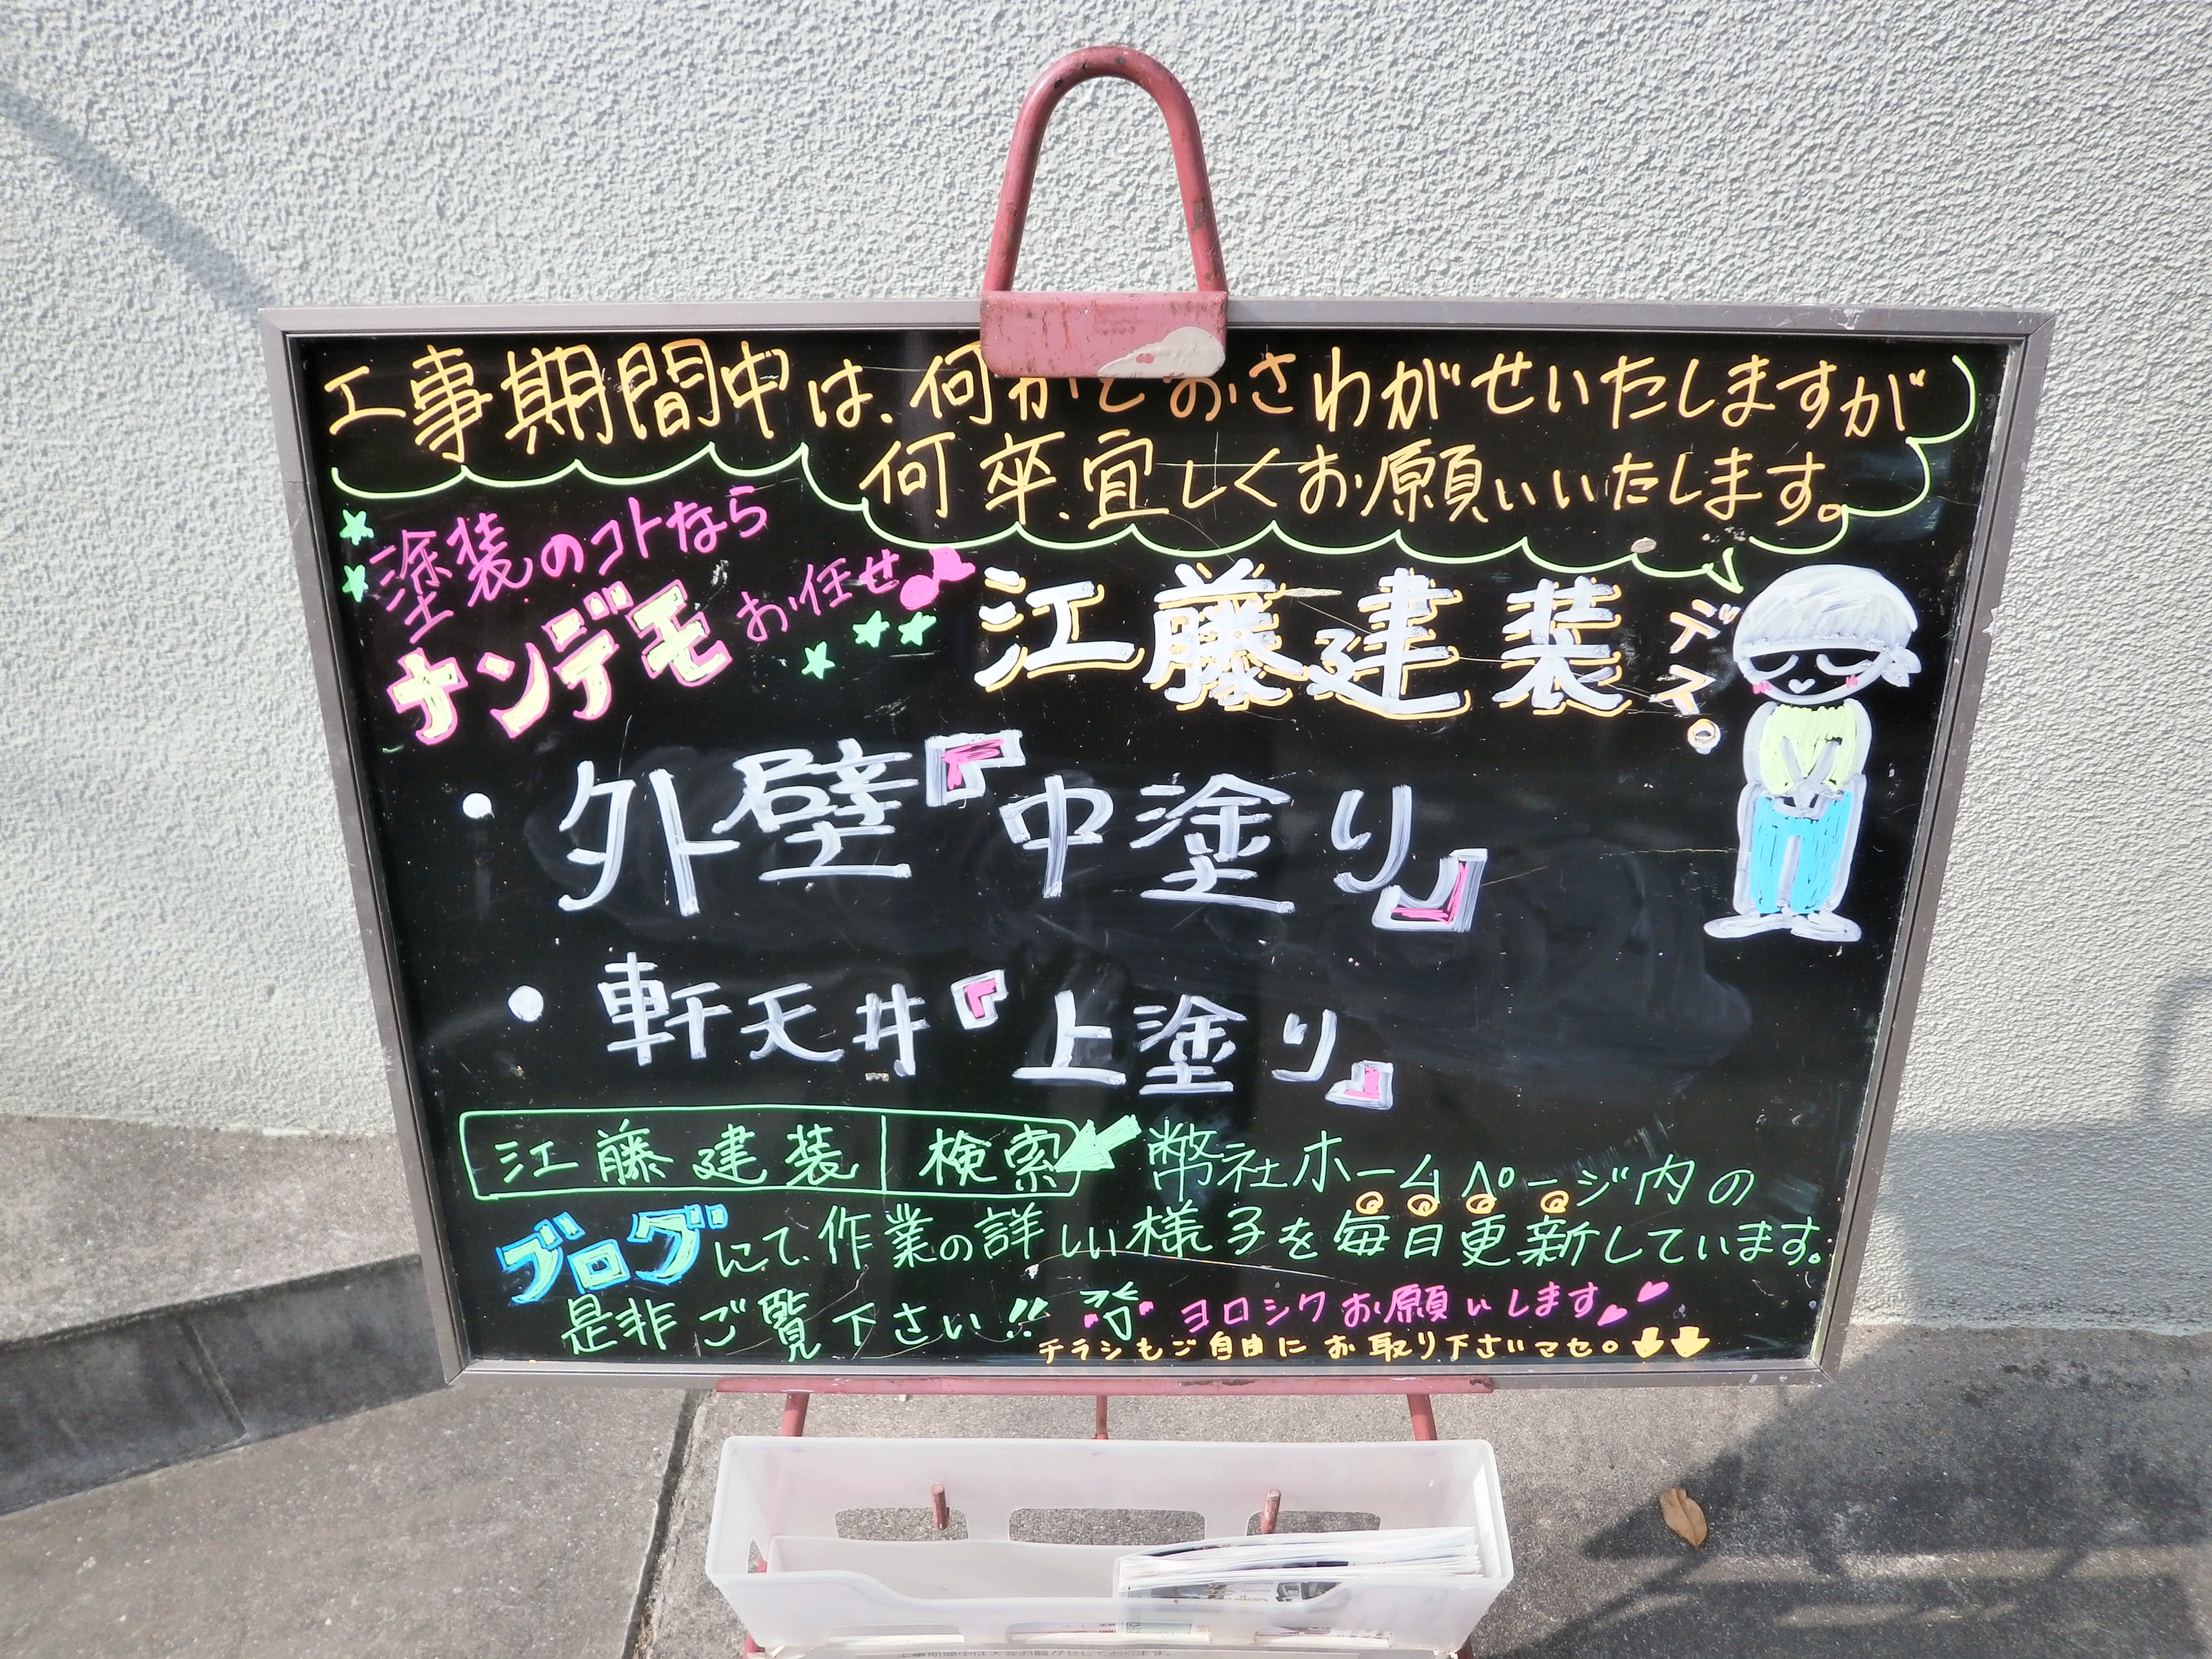 工事期間中は、何かとおさわがせいたしますが
何卒、宜しくお願いいたします。
塗装のコトなら
ナンデモお任せ♪
江藤建装デス。
・外壁『中塗り』
・軒天井『上塗り』
江藤建装 検索 弊社ホームページ内の
ブログにて、作業の詳しい様子を毎日更新しています。
是非ご覧下さい!! ヨロシクお願いします
チラシもご自由にお取り下さいマセ。